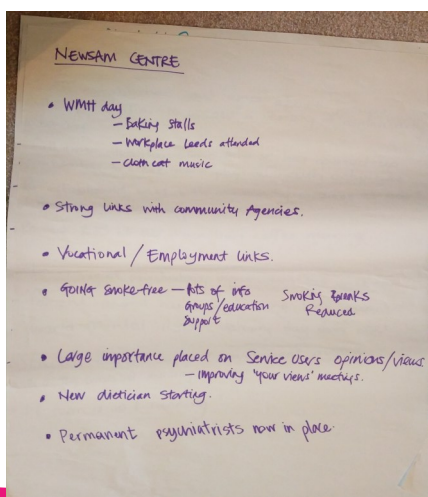 NEWSAM CENTRE
• WMH day
– Baking stalls
– Workplace Leeds attended
– Cloth cat music
• Strong links with community Agencies.
• Vocational / Employment links.
• GOING smoke-free – lots of info
Groups/education
Support
Smoking Breaks
Reduced
• Large importance placed on Service Users opinions/views
– improving 'your views' meetings.
• New dietician starting.
• Permanent psychiatrists now in place.